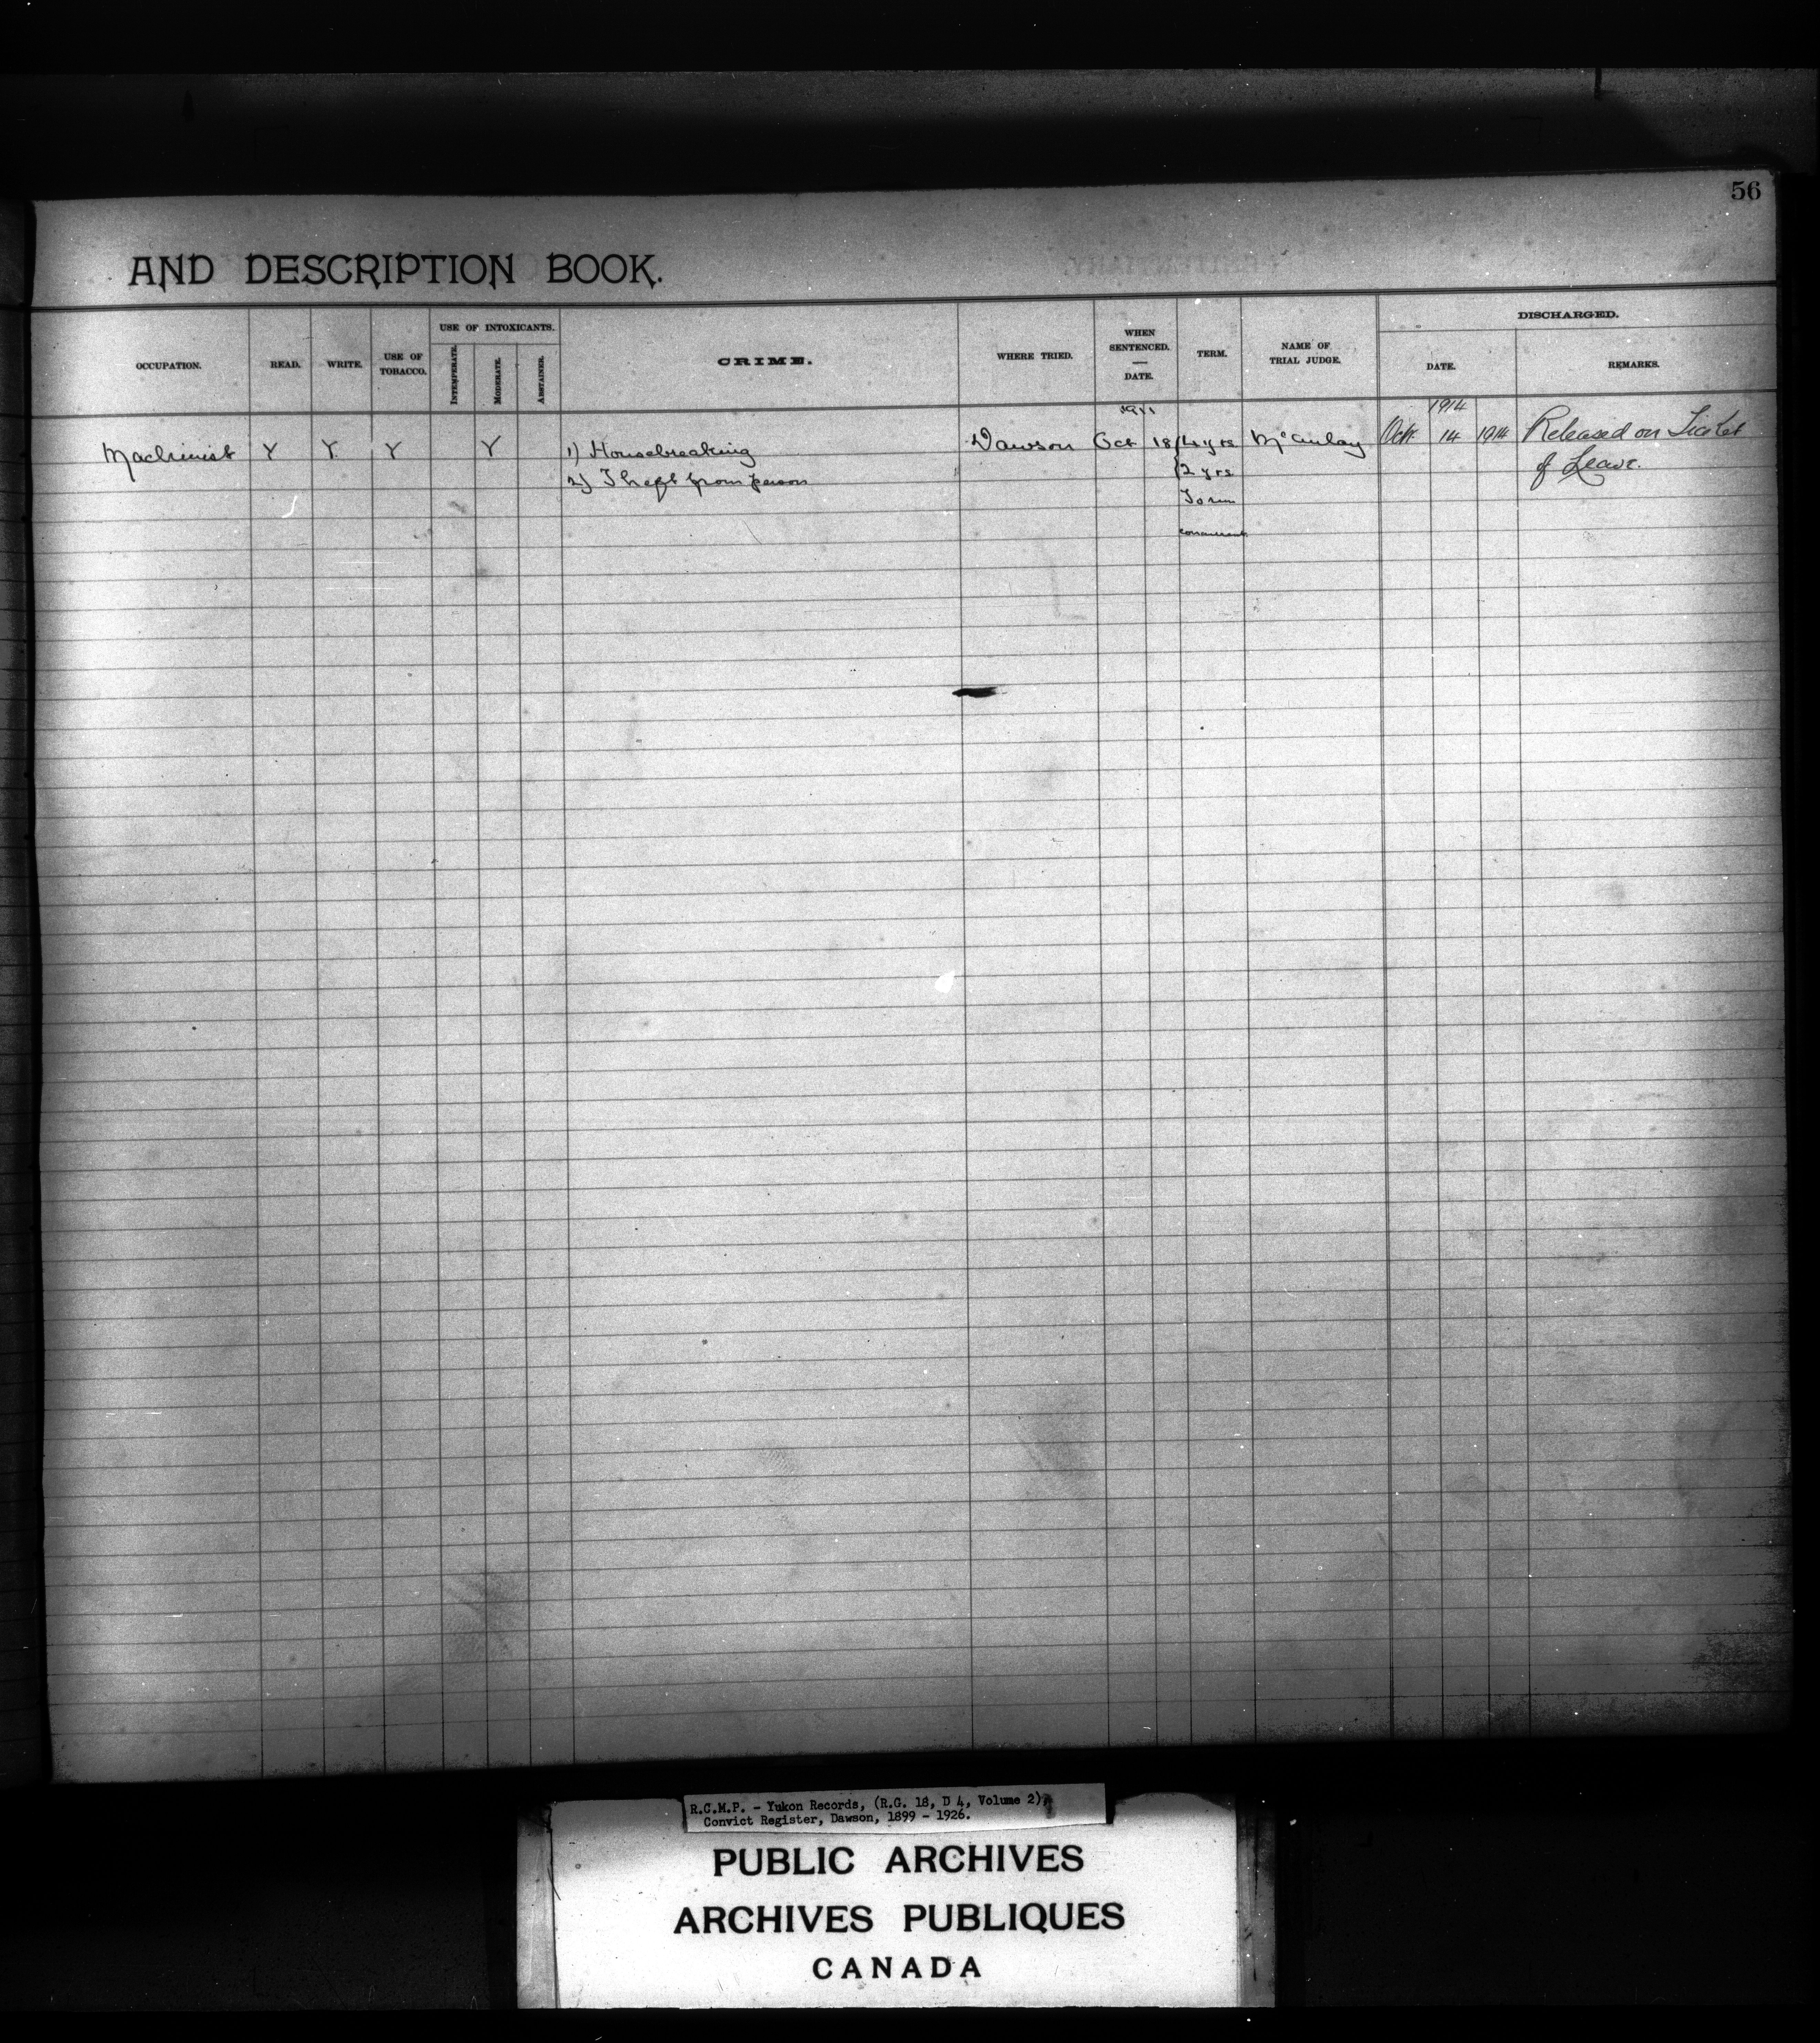 56
AND DESCRIPTION BOOK.
OCCUPATION.
READ.
WRITE.
USE OF
TOBACCO.
USE OF INTOXICANTS.
INTEMPERATE.
MODERATE.
ABSTAINER.
CRIME.
WHERE TRIED.
WHEN
SENTENCED.
DATE.
TERM.
NAME OF
TRIAL JUDGE.
DISCHARGED.
DATE.
REMARKS.
1911
1914
Machinist Y Y Y Y 1) Housebreaking Dawson Oct 18 4 yrs McAulay Oct. 14 1914 Released on Ticket
2) Theft from person 2 yrs of Leave.
To run
concurrent
R.C.M.P. - Yukon Records, (R.G. 18, D 4, Volume 2),
Convict Register, Dawson, 1899 - 1926.
PUBLIC ARCHIVES
ARCHIVES PUBLIQUES
CANADA